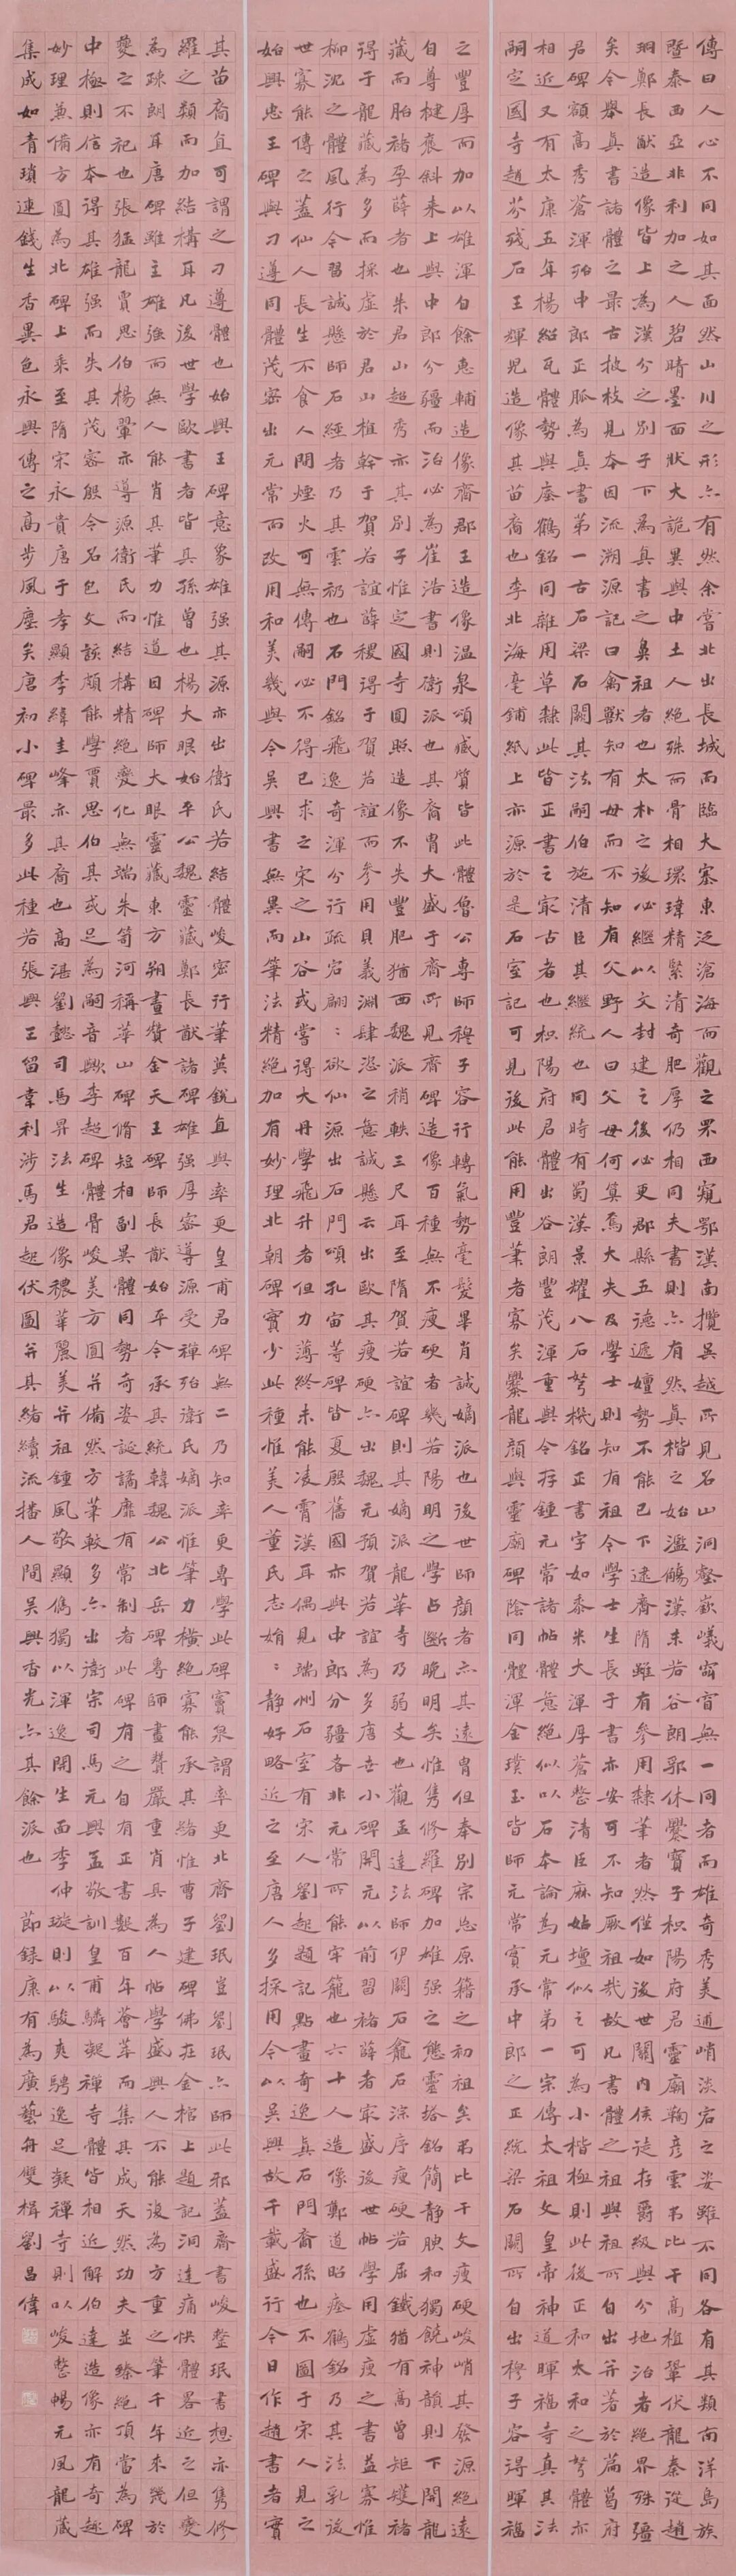 傳曰人心不同如其面然山川之形亦有然余嘗北出長城而臨大塞東泛滄海而觀之罘西窺鄂漢南攬吳越所見名山洞壑嶔巇窅窅無一同者而雄奇秀美逋峭淡宕之姿雖不同各有其類南洋島族
暨泰西亞非利加之人碧晴墨面狀大詭異與中土人絕殊而骨相瓌瑋精緊清奇肥厚仍相同夫書則亦有然真楷之始濫觴漢末若谷朗郭休爨寶子枳陽府君靈廟鞠彥雲弔比干高植鞏伏龍秦從趙
琱鄭長猷造像皆上為漢分之別子下為真書之鼻祖者也太朴之後必繼以文封建之後必更郡縣五德遞嬗勢不能已下逮齊隋雖有參用隸筆者然僅如後世關內侯徒存爵級與分地治者絕界殊疆
矣今舉真書諸體之最古披枝見本因流溯源記曰禽獸知有母而不知有父野人曰父母何算焉大夫及學士則知有祖今學士生長于書亦安可不知厥祖哉故凡書體之祖與祖所自出并著於篇葛府
君碑額高秀蒼渾殆中郎正脈為真書第一古石梁石闕其法嗣伯施清臣其繼統也同時有蜀漢景耀八石弩機銘正書字如黍米大渾厚蒼整清臣麻姑壇似之可為小楷極則此後正和太和之弩體亦
相近又有太康五年楊紹瓦體勢與瘞鶴銘同雜用草隸此皆正書之最古者也枳陽府君體出谷朗豐茂渾重與今存鍾元常諸帖體意絕似以石本論為元常第一宗傳太祖文皇帝神道暉福寺真其法
嗣定國寺趙芬殘石王輝兒造像其苗裔也李北海毫鋪紙上亦源於是石室記可見後此能用豐筆者寡矣爨龍顏與靈廟碑陰同體渾金璞玉皆師元常實承中郎之正統梁石闕所自出穆子容得暉福
之豐厚而加以雄渾自餘惠輔造像齊郡王造像溫泉頌臧質皆此體魯公專師穆子容行轉氣勢毫髮畢肖誠嫡派也後世師顏者亦其遠胄但奉別宗忘原籍之初祖矣弔比干文瘦硬峻峭其發源絕遠
自尊楗褒斜來上與中郎分疆而治必為崔浩書則衛派也其裔胄大盛于齊所見齊碑造像百種無不瘦硬者幾若陽明之學占斷晚明矣惟雋修羅碑加雄强之態靈塔銘簡靜腴和獨饒神韻則下開龍
藏而胎褚孕薛者也朱君山超秀亦其別子惟定國寺圓照造像不失豐肥猶西魏派稍軼三尺耳至隋賀若誼碑則其嫡派龍華寺乃弱支也觀孟達法師伊闕石龕石淙序瘦硬若屈鐵猶有高曾矩矱褚
得于龍藏為多而採虛於君山植幹于賀若誼薛稷得于賀若誼而參用貝義淵肆恣之意誠懸云出歐其瘦硬亦出魏元預賀若誼為多唐世小碑開元以前習褚薛者最盛後世帖學用虛瘦之書益寡惟
柳沈之體風行今習誠懸師石經者乃其雲礽也石門銘飛逸奇渾分行疏宕翩:欲仙源出石門頌孔宙等碑皆夏殷舊國亦與中郎分疆各非元常所能牢籠也六十人造像鄭道昭瘞鶴銘乃其法乳後
世寡能傳之蓋仙人長生不食人間煙火可無傳嗣必不得已求之宋之山谷或嘗得大丹學飛升者但力薄終未能凌霄漢耳偶見端州石室有宋人劉起題記點畫奇逸真石門裔孫也不圖于宋人見之
始興忠王碑與刁遵同體茂密出元常而改用和美幾與今吳興書無異而筆法精絕加有妙理北朝碑實少此種惟美人董氏志媚:靜好略近之至唐人多採用今以吳興故千載盛行今日作趙書者實
其苗裔直可謂之刁遵體也始興王碑意象雄强其源亦出衛氏若結體峻密行筆英銳直與率更皇甫君碑無二乃知率更專學此碑竇泉謂率更北齊劉珉豈劉珉亦師此邪蓋齊書峻整珉書想亦雋修
羅之類而加結構耳凡後世學歐書者皆其孫曾也楊大眼始平公魏靈藏鄭長猷諸碑雄强厚密導源受禪殆衛氏嫡派惟筆力橫絕寡能承其緒惟曹子建碑佛在金棺上題記洞達痛快體畧近之但變
為疎朗耳唐碑雖主雄强而無人能肖其筆力惟道因碑師大眼靈藏東方朔畫贊金天王碑師長猷始平令承其統韓魏公北岳碑專師畫贊嚴重肖其為人帖學盛興人不能復為方重之筆千年來幾於
夔之不祀也張猛龍賈思伯楊翬亦導源衛氏而結構精絕變化無端朱笥河稱華山碑脩短相副異體同勢奇姿誕譎靡有常制者此碑有之自有正書數百年薈萃而集其成天然功夫並臻絕頂當為碑
中極則信本得其雄强而失其茂密殷令名包文該頗能學賈思伯其或足為嗣音歟李超碑體骨峻美方圓并備然方筆較多亦出衛宗司馬元興孟敬訓皇甫驎凝禪寺體皆相近解伯達造像亦有奇趣
妙理兼備方圓為北碑上乘至隋宋永貴唐于孝顯李緯圭峰亦其裔也高湛劉懿司馬昇法生造像穠華麗美并祖鍾風敬顯儁獨以渾逸開生面李仲璇則以駿爽騁逸足凝禪寺則以峻整暢元風龍藏
集成如青瑣連錢生香異色永興傳之高步風塵矣唐初小碑最多此種若張興王留韋利涉馬君起伏圖并其緒續流播人間吳興香光亦其餘派也 節錄康有為廣藝舟雙楫劉昌偉